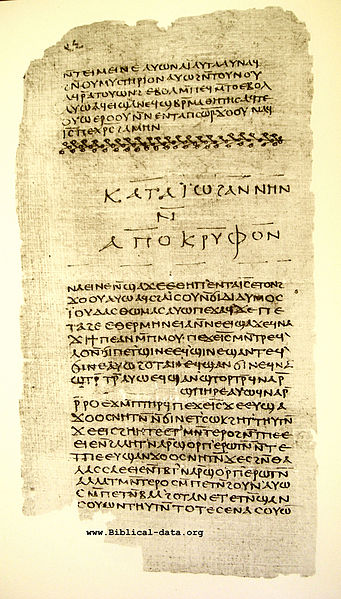 ⲛ̄ⲧⲉⲓⲙⲉⲓⲛⲉ ⲁⲩⲱ ⲛⲁⲓ̈ ⲁⲩⲧⲁⲁⲩ ⲛⲁϥ
ϩⲛ̄ⲛⲟⲩⲙⲩⲥⲧⲏⲣⲓⲟⲛ ⲁⲩⲱ ⲛ̄ⲧⲟⲩⲛⲟⲩ
ⲁϥⲣ̄ⲁⲧⲟⲩⲱⲛϩ ⲉⲃⲟⲗ ⲙ̄ⲡⲉϥⲙ̄ⲧⲟ ⲉⲃⲟⲗ
ⲁⲩⲱ ⲁϥⲉⲓ ϣⲁ ⲛⲉϥϣⲃⲣ̄ⲙⲁⲑⲏⲧⲏⲥ ⲁϥⲧⲉ
ⲟⲩⲱ ⲉⲣⲟⲟⲩ ⲛ̄ⲛⲉⲛⲧⲁⲡⲥⲱ̅ⲣ̅ ϫⲟⲟⲩ ⲛⲁϥ
ⲓ̅ⲥ̅ ⲡⲉⲭ̅ⲥ̅ ϩⲁⲙⲏⲛ
ⲕⲁⲧⲁ ⲓ̈ⲱϩⲁⲛⲛⲏⲛ
ⲛ̄
ⲁⲡⲟⲕⲣⲩⲫⲟⲛ
ⲛⲁⲉⲓ ⲛⲉ ⲛ̄ϣⲁϫⲉ ⲉⲑⲏⲡ ⲉⲛⲧⲁⲓ̅ⲥ̅ ⲉⲧⲟⲛϩ
ϫⲟⲟⲩ ⲁⲩⲱ ⲁϥⲥϩⲁⲓ̈ⲥⲟⲩ ⲛ̄ϭⲓ ⲇⲓⲇⲩⲙⲟⲥ
ⲓ̈ⲟⲩⲇⲁⲥ ⲑⲱⲙⲁⲥ ⲁⲩⲱ ⲡⲉϫⲁϥ ϫⲉ ⲡⲉ
ⲧⲁϩⲉ ⲉⲑⲉⲣⲙⲏⲛⲉⲓⲁ ⲛ̄ⲛⲉⲉⲓϣⲁϫⲉ ϥⲛⲁ
ϫⲓ ϯⲡⲉ ⲁⲛ ⲙ̄ⲡⲙⲟⲩ ⲡⲉϫⲉ ⲓ̅ⲥ̅ ⲙⲛ̄ⲧⲣⲉϥ
ⲗⲟ ⲛ̄ϭⲓ ⲡⲉⲧϣⲓⲛⲉ ⲉϥϣⲓⲛⲉ ϣⲁⲛⲧⲉϥ
ϭⲓⲛⲉ ⲁⲩⲱ ϩⲟⲧⲁⲛ ⲉϥϣⲁⲛϭⲓⲛⲉ ϥⲛⲁ
ϣⲧⲣ̄ⲧⲣ̄ ⲁⲩⲱ ⲉϥϣⲁⲛϣⲧⲟⲣⲧⲣ̄ ϥⲛⲁⲣ̄
ϣⲡⲏⲣⲉ ⲁⲩⲱ ϥⲛⲁⲣ̄
ⲣ̄ⲣⲟ ⲉϫⲙ̄ ⲡⲧⲏⲣϥ ⲡⲉϫⲉ ⲓ̅ⲥ̅ ϫⲉ ⲉⲩϣⲁ
ϫⲟⲟⲥ ⲛⲏⲧⲛ̄ ⲛ̄ϭⲓ ⲛⲉⲧⲥⲱⲕ ϩⲏⲧ ⲧⲏⲩⲧⲛ̄
ϫⲉ ⲉⲓⲥϩⲏⲏⲧⲉ ⲉⲧⲙⲛ̄ⲧⲉⲣⲟ ϩⲛ̄ ⲧⲡⲉ ⲉ
ⲉⲓⲉ ⲛ̄ϩⲁⲗⲏⲧ ⲛⲁⲣ̄ ϣⲟⲣⲡ ⲉⲣⲱⲧⲛ̄ ⲛ̄ⲧⲉ
ⲧⲡⲉ ⲉⲩϣⲁⲛϫⲟⲟⲥ ⲛⲏⲧⲛ̄ ϫⲉ ⲥϩⲛ̄ ⲑⲁ
ⲗⲁⲥⲥⲁ ⲉⲉⲓⲉ ⲛ̄ⲧⲃⲧ ⲛⲁⲣ̄ ϣⲟⲣⲡ ⲉⲣⲱⲧⲛ̄
ⲁⲗⲗⲁ ⲧⲙⲛ̄ⲧⲉⲣⲟ ⲥⲙ̄ⲡⲉⲧⲛ̄ϩⲟⲩⲛ ⲁⲩⲱ
ⲥⲙ̄ⲡⲉⲧⲛ̄ⲃⲁⲗ ϩⲟⲧⲁⲛ ⲉⲧⲉⲧⲛ̄ϣⲁⲛ
ⲥⲟⲩⲱⲛ ⲧⲏⲩⲧⲛ̄ ⲧⲟⲧⲉ ⲥⲉⲛⲁⲥⲟⲩⲱ
www.Biblical-data.org